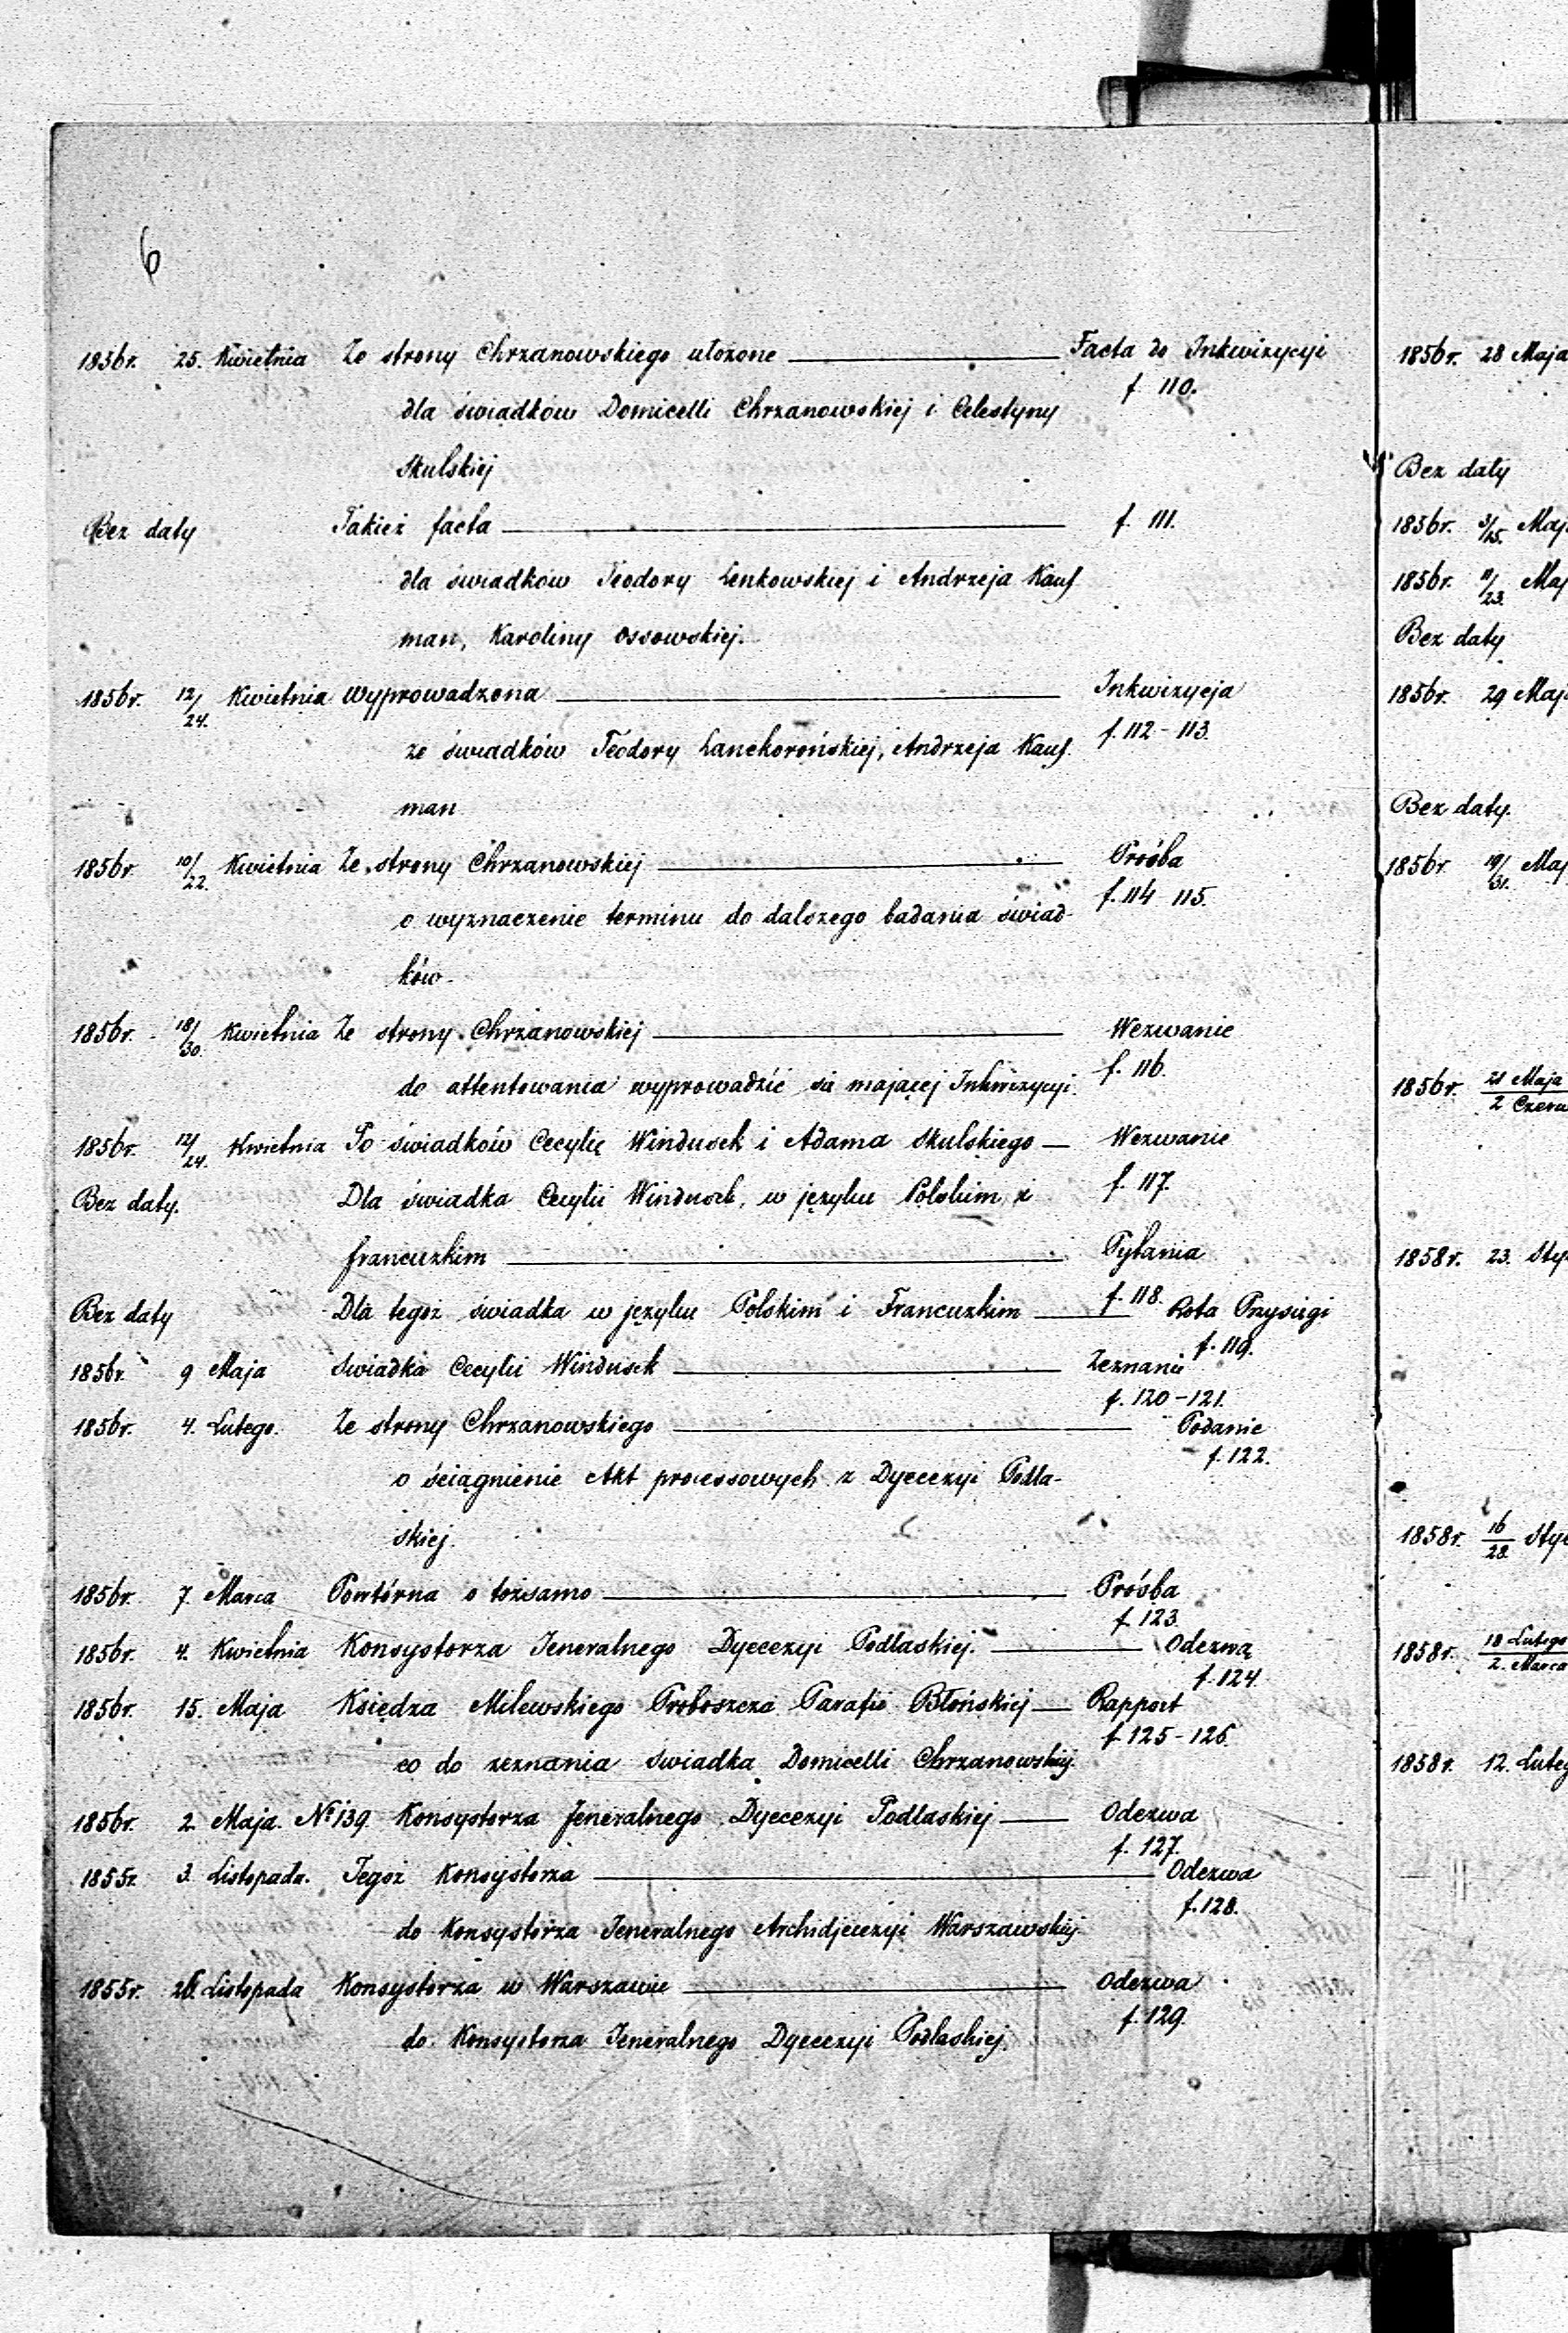 6
1856r. 25. Kwietnia Ze strony Chrzanowskiego ułożone — Facta do Inkwizycyi
f. 110.
dla świadków Domicelli Chrzanowskiej i Celestyny
Skulskiej
Bez daty Takież facta — f. 111.
dla świadków Teodory Lenkowskiej i Andrzeja Kauf
man, Karoliny Ossowskiej.
1856r. 12/24. Kwietnia Wyprowadzona — Inkwizycja
f. 112-113.
ze świadków Teodory Lanckorońskiej, Andrzeja Kauf.
man
1856r. 10/22. Kwietnia Ze strony Chrzanowskiej — Prośba
f. 114 115.
o wyznaczenie terminu do dalszego badania świad-
ków.
1856r. 18/30. Kwietnia Ze strony Chrzanowskiej — Wezwanie
f. 116.
do attentowania wyprowadzić się mającej Inkwizycyi.
1856r. 12/24. Kwietnia Po świadków Cecylię Windusek i Adama Skulskiego — Wezwanie
f. 117.
Bez daty. Dla świadka Cecylii Windusek, w języku Polskim i
francuzkim — Pytania
f. 118.
Bez daty Dla tegoż świadka w języku Polskim i Francuzkim — Rota Przysięgi
f. 119.
1856r. 9 Maja Świadka Cecylii Windusek — Zeznanie
f. 120-121.
1856r. 4. Lutego. Ze strony Chrzanowskiego — Podanie
f. 122.
o ściągnienie Akt processowych z Dyecezyi Podla-
skiej.
1856r. 7 Marca Powtórna o tożsamo — Prośba
f. 123.
1856r. 4. Kwietnia Konsystorza Jeneralnego Dyecezyi Podlaskiej. — Odezwa
f. 124.
1856r. 15. Maja Księdza Milewskiego Proboszcza Parafii Błońskiej — Rapport
f. 125-126.
co do zeznania świadka Domicelli Chrzanowskiej.
1856r. 2. Maja. № 139 Konsystorza Jeneralnego Dyecezyi Podlaskiej — Odezwa
f. 127.
1855r. 3. Listopada. Tegoż Konsystorza — Odezwa
f. 128.
do Konsystorza Jeneralnego Archidjecezyi Warszawskiej.
1855r. 26. Listopada Konsystorza w Warszawie — Odezwa
f. 129.
do Konsystorza Jeneralnego Dyecezyi Podlaskiej.
1856r. 28 Maja
Bez daty
1856r. 3/15. Maj
1856r. 11/23. Maj
Bez daty
1856r. 29 Maj
Bez daty.
1856r. 19/31. Maj
1856r. 21 Maja
2 Czerw
1858r. 23. Sty
1858r. 16/28 Sty
1858r. 18 Lutego
2. Marca
1858r. 12. Luteg